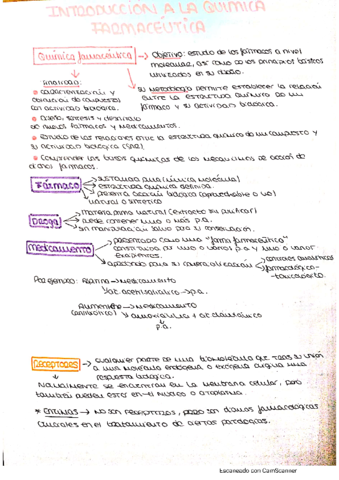 INTRODUCCIÓN A LA QUÍMICA
FARMACÉUTICA
Química farmacéutica → Objetivo: estudio de los fármacos a nivel
molecular, así como de los principios básicos
utilizados en su diseño.
Finalidad:
su metodología permite establecer la relación
entre la estructura química de un
fármaco y su actividad biológica.
caracterización y
obtención de compuestos
con actividad biológica.
Diseño, síntesis y desarrollo
de nuevos fármacos y medicamentos.
Estudio de las relaciones entre la estructura química de un compuesto y
su actividad biológica (SAR)
Comprender las bases químicas de los mecanismos de acción de
dichos fármacos.
Fármaco
sustancia pura (única molécula)
estructura química definida
presenta acción biológica (aprovechable o no)
natural o sintético
Droga
materia prima natural (extracto sin purificar)
puede contener uno o más p.a.
sin manipulación salvo para su conservación.
Medicamento
presentado como una "forma farmacéutica"
constituido por uno o varios p.a y uno o varios
excipientes.
autorizado para su comercialización
controles analíticos
farmacológico-
toxicológico.
Por ejemplo: Aspirina → Medicamento
↳ác. acetilsalicílico → p.a.
Augmentine → Medicamento
(antibiótico) ↳ amoxicilina + ác clavulánico
p.a.
Receptores → cualquier parte de una biomolécula que tras su unión
a una molécula endógena o exógena origina una
respuesta biológica.
Normalmente se encuentran en la membrana celular, pero
también pueden estar en el núcleo o citoplasma.
* Enzimas → No son receptores, pero son dianas farmacológicas
cruciales en el tratamiento de ciertas patologías.
Escaneado con CamScanner